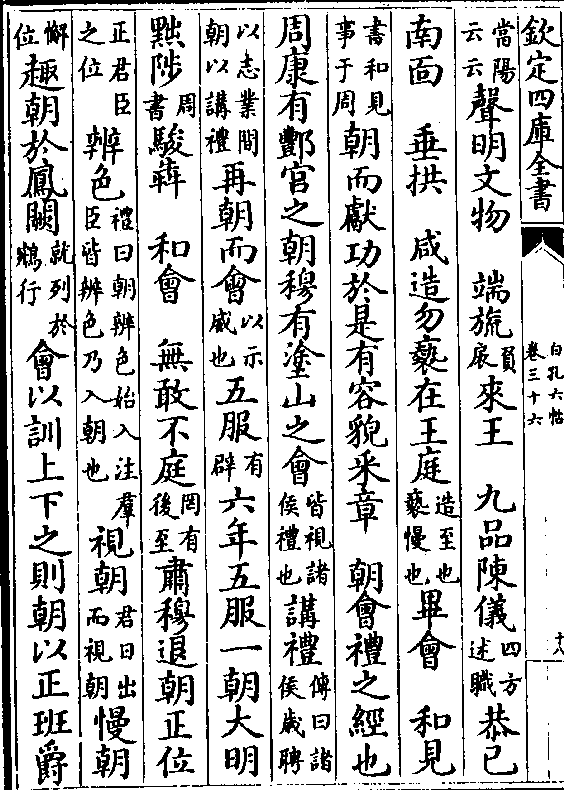 欽定四庫全書
白孔六帖
卷三十六
十八
當陽云云聲明文物　端旒負扆來王　九品陳儀四方述職恭已
南面　垂拱　咸造勿䙝在王庭造至也䙝慢也畢會　和見
書和見事于周朝而獻功於是有容貌采章　朝會禮之經也
周康有酆宮之朝穆有塗山之會皆視諸侯禮也講禮傳曰諸侯歲聘
以志業間朝以講禮再朝而會以示威也五服有辟六年五服一朝大明
黜陟周書駿奔　和會　無敢不庭罔有後至肅穆退朝正位
正君臣之位辨色禮曰朝辨色始入注羣臣皆辨色乃入朝也視朝君日出而視朝慢朝
懈位趣朝於鳳闕就列於鵷行會以訓上下之則朝以正班爵